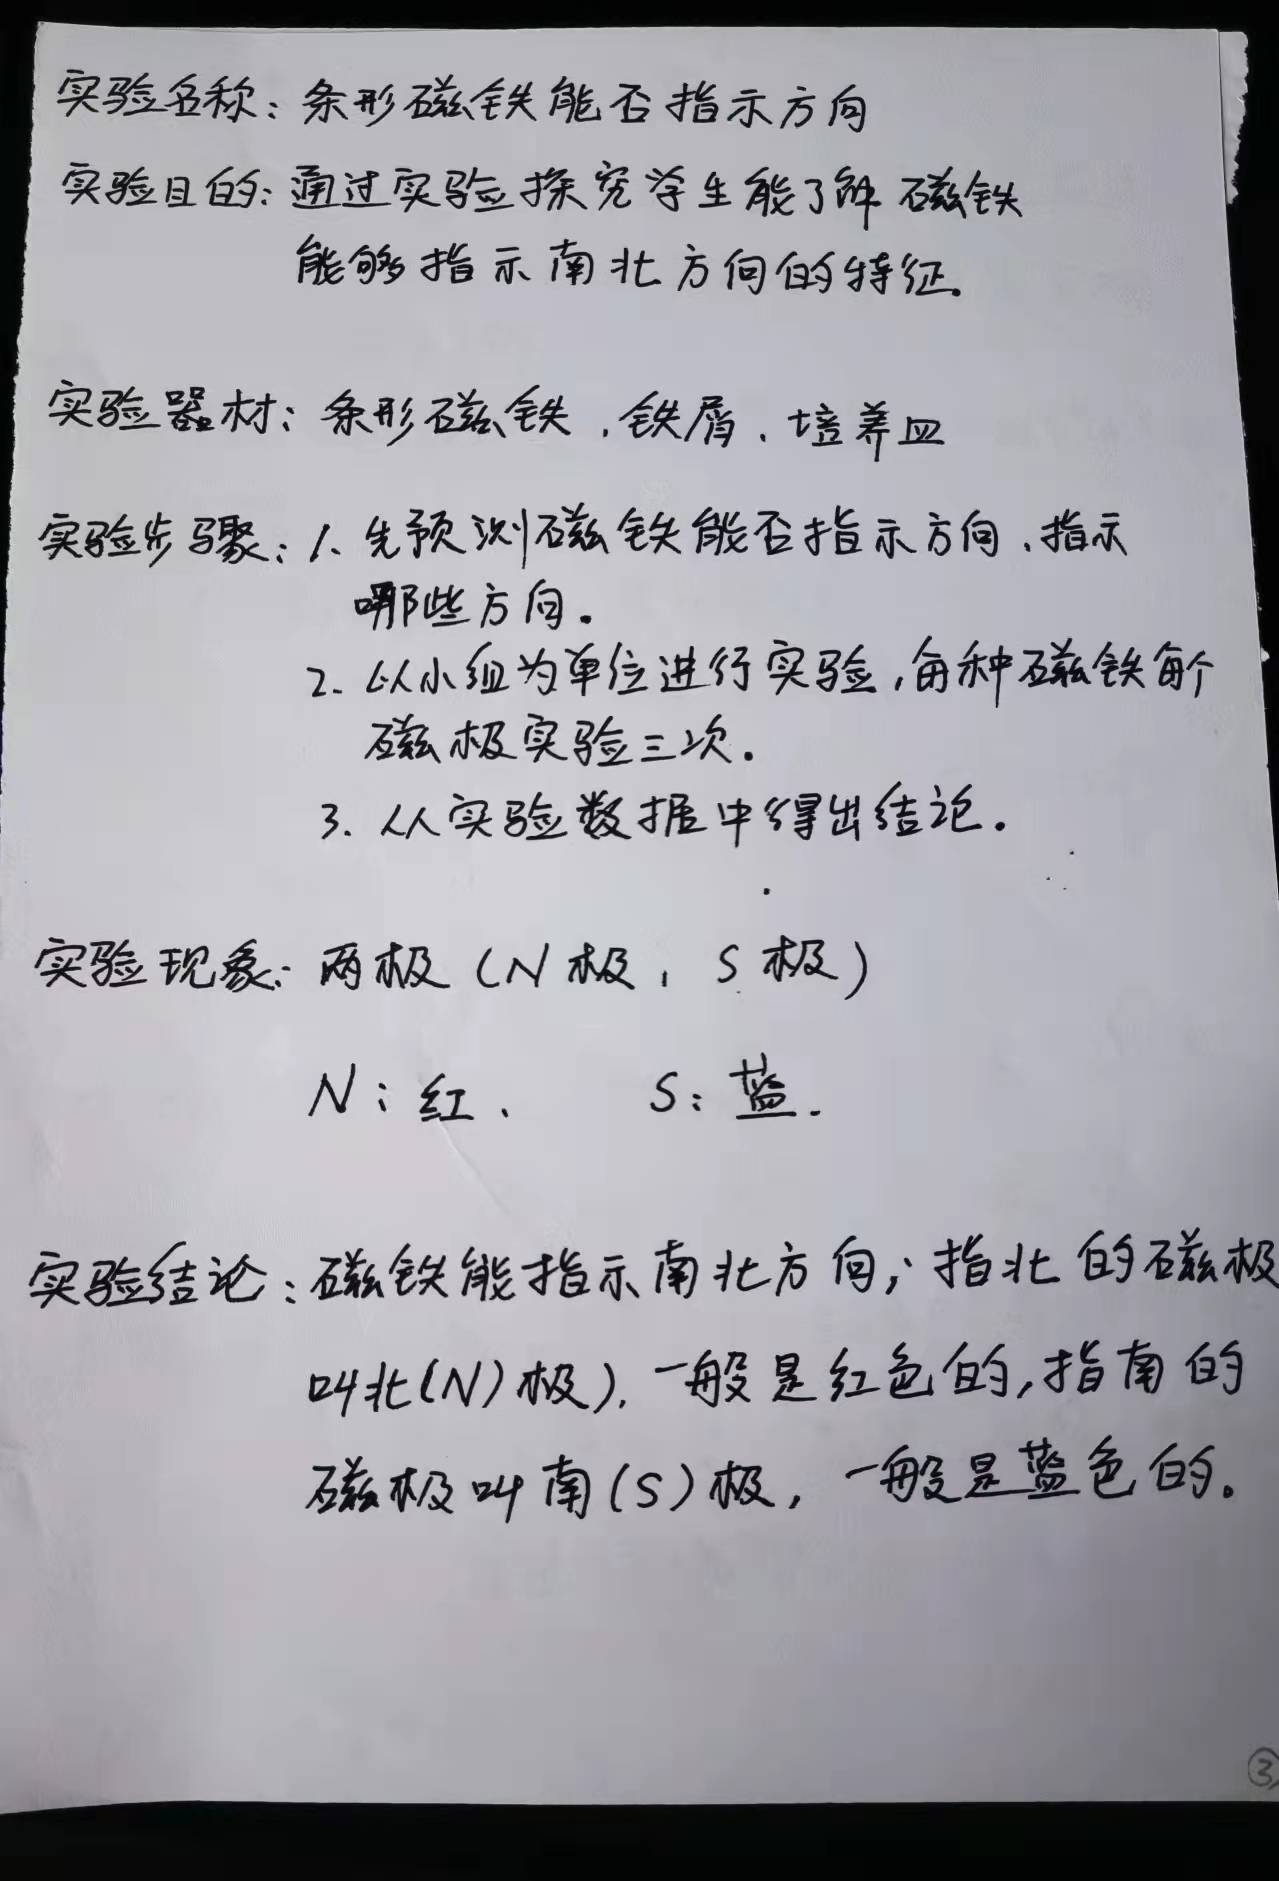 实验名称：条形磁铁能否指示方向
实验目的：通过实验探究学生能了解磁铁
能够指示南北方向的特征。
实验器材：条形磁铁、铁屑、培养皿
实验步骤：1、先预测磁铁能否指示方向、指示
哪些方向。
2. 以小组为单位进行实验，每种磁铁每个
磁极实验三次.
3. 从实验数据中得出结论.
实验现象：两极（N极，S极）
N：红、 S：蓝.
实验结论：磁铁能指示南北方向；指北的磁极
叫北(N)极)，一般是红色的，指南的
磁极叫南(S)极，一般是蓝色的。
③